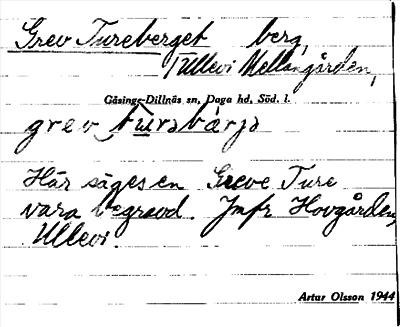 Grev Tureberget berg,
Tullevi Mellangården,
Gåsinge-Dillnäs sn, Daga hd, Söd. l.
grev
Här säges en Greve Ture
vara begravd. Jmfr Hovgården,
Ullevi.
Artur Olsson 1944